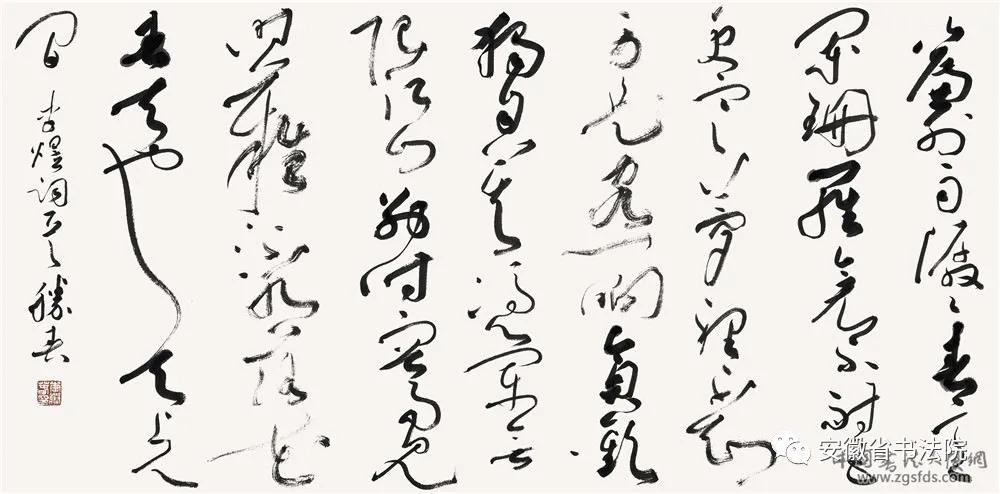 簾外雨潺々春意
闌珊羅衾不耐五
更寒夢裡不知
身是客一晌貪歡
獨自莫憑闌無
限江山別時容易見
時難流水落花
春去也天上人
間 李煜詞
安徽省书法院
www.zgsfds.com